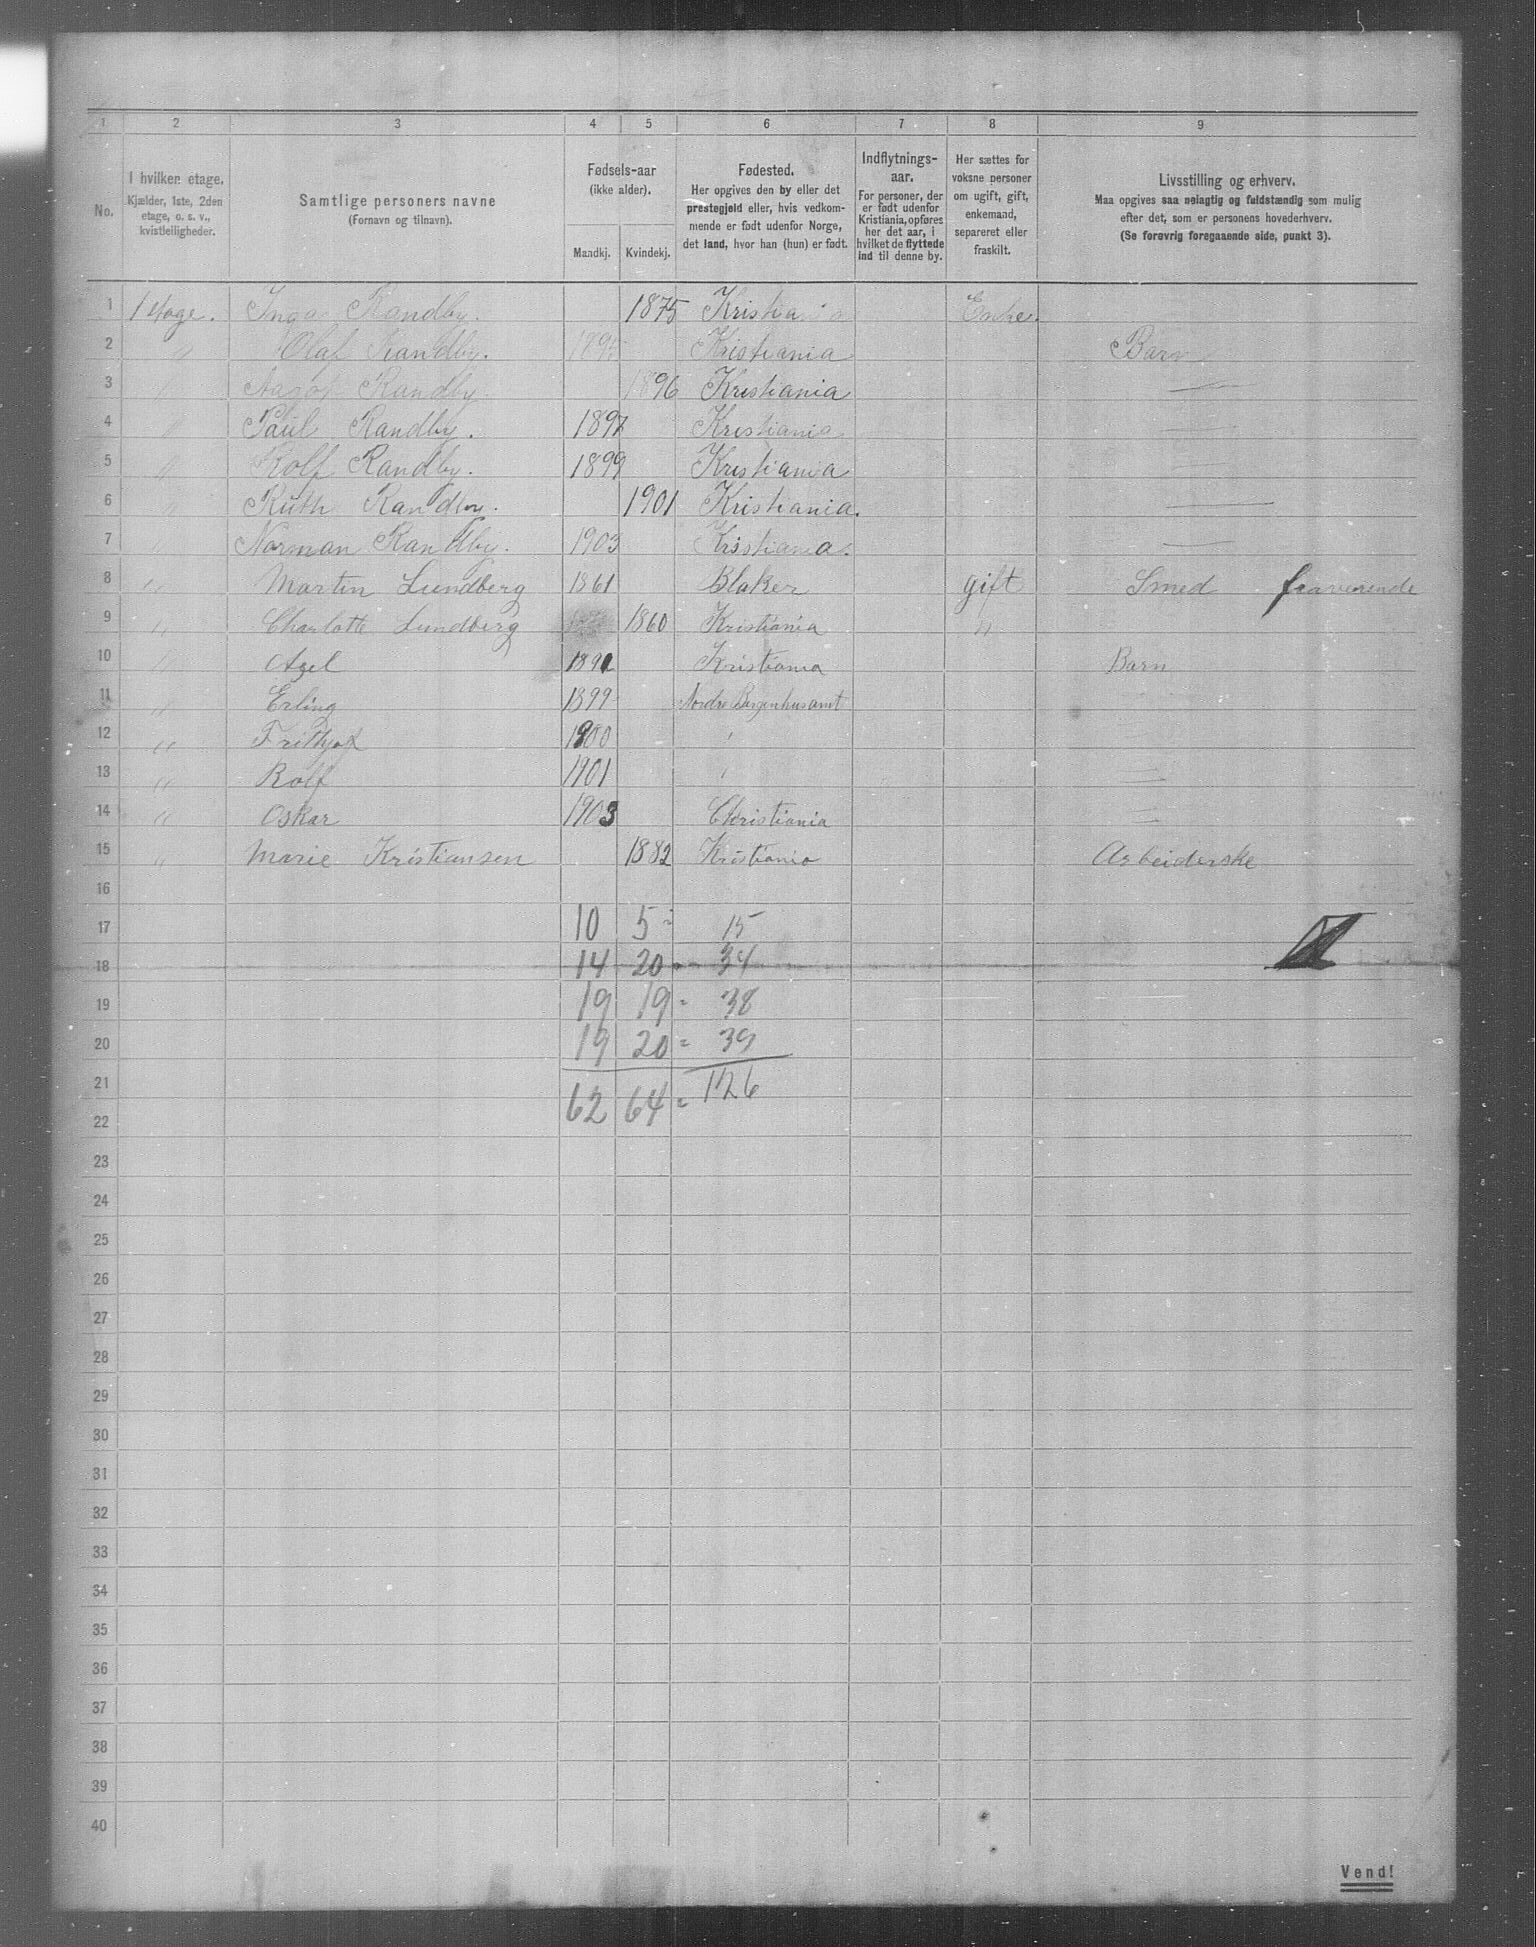 1 2 3 4 5 6 7 8 9
No.
I hvilken etage.
Kjælder, 1ste, 2den
etage, o. s. v.,
kvistleiligheder.
Samtlige personers navne
(Fornavn og tilnavn).
Fødsels-aar
(ikke alder).
Mandkj. Kvindekj.
Fødested.
Her opgives den by eller det
prestegjeld eller, hvis vedkom-
mende er født udenfor Norge,
det land, hvor han (hun) er født.
Indflytnings-
aar.
For personer, der
er født udenfor
Kristiania, opføres
her det aar, i
hvilket de flyttede
ind til denne by.
Her sættes for
voksne personer
om ugift, gift,
enkemand,
separeret eller
fraskilt.
Livsstilling og erhverv.
Maa opgives saa nøiagtig og fuldstændig som mulig
efter det, som er personens hovederhverv.
(Se forøvrig foregaaende side, punkt 3).
1 1 etage. Inga Randby. 1875 Kristiania Enke.
2 " Olaf Randby. Kristiania Barn
3 " Aagot Randby. 1896 Kristiania —
4 " Paul Randby. 1897 Kristiania —
5 " Rolf Randby. 1899 Kristiania —
6 " Ruth Randby. 1901 Kristiania. —
7 " Norman Randby. 1903 Kristiania. —
8 " Martin Lundberg 1861 Blaker gift Smed fraværende
9 " Charlotte Lundberg 1860 Kristiania "
10 " Axel 1891 Kristiania Barn
11 " Erling 1899 Nordre Bergenhus amt —
12 " Frithjof 1900 " —
13 " Rolf 1901 " —
14 " Oskar 1903 Christiania —
15 " Marie Kristiansen 1882 Kristiania Arbeiderske
16
17 10 5 = 15
18 14 20 = 34
19 19 19 = 38
20 19 20 = 39
21 62 64 = 126
22
23
24
25
26
27
28
29
30
31
32
33
34
35
36
37
38
39
40
Vend!